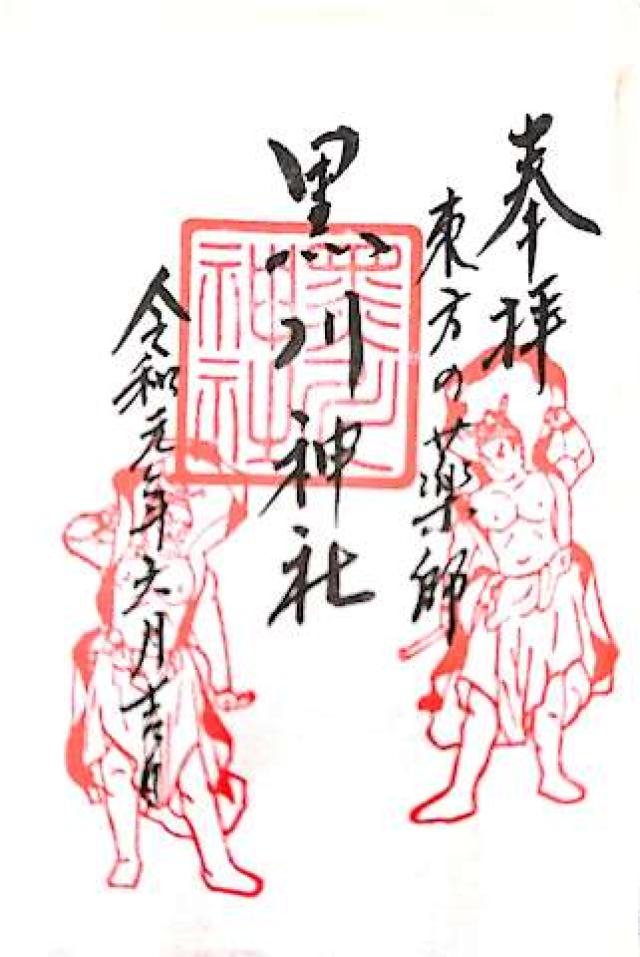 奉拝
東方の薬師
黒川神社
黒川神社
令和元年六月十六日